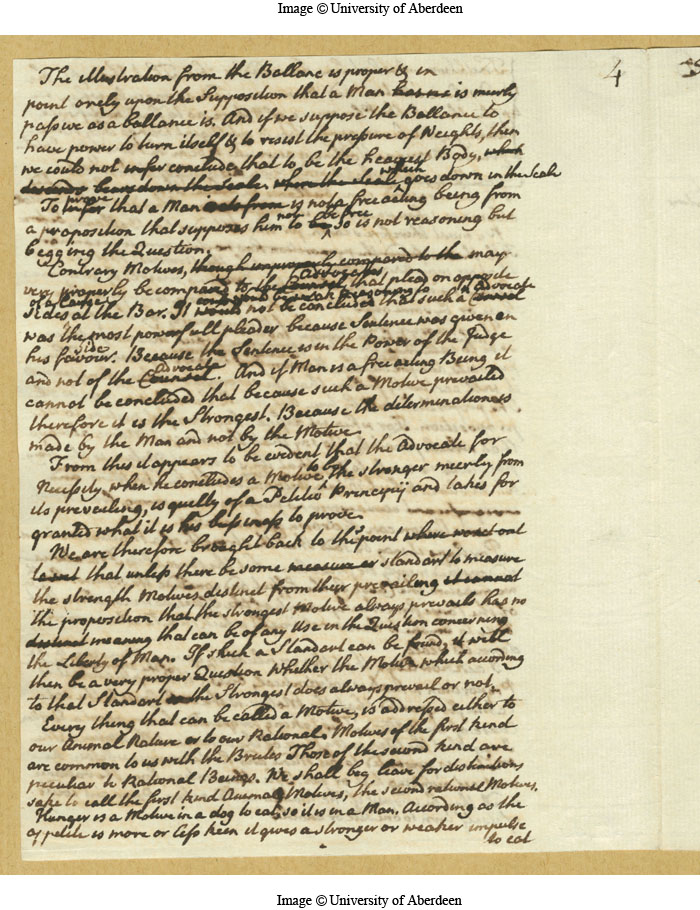 Image © University of Aberdeen
4
The illustration from the Ballanc is proper & in
point onely upon the Supposition that a Man is meerly
passive as a ballance is. And if we suppose the Ballance to
have power to turn itself & to resist the pressure of Weights, then
we could not infer conclude that to be the heavyest Body, which
descends bears down the Scale. where the Scale which goes down in the Scale
To infer prove that a Man is not a free acting being from
a proposition that supposes him not to be free so is not reasoning but
begging the Question.
Contrary Motives, though improperly compared to the may
very properly be compared to the Counsel Advocates that plead on opposite
sides of a Cause at the Bar. It would not be concluded that such a Counsel Advocate
was the most powerfull pleader because Sentence was given on
his favour side. Because the Sentence is in the Power of the Judge
and not of the Counsel Advocate. And if Man is a free acting Being it
cannot be concluded that because such a Motive prevailed
therefore it is the Strongest. Because the determination is
made by the Man and not by the Motive.
From this it appears to be evident that the Advocate for
Necessity when he concludes a Motive to be the stronger meerly from
its prevailing, is guilty of a Petitio Principij and takes for
granted what it is his business to prove.
We are therefore brought back to this point where we set out
to wit that unless there be some measure or standart to measure
the strength Motives distinct from their prevailing it cannot
the proposition that the strongest Motive always prevails has no
distinct meaning that can be of any Use in the Question concerning
the Liberty of Man. If such a Standart can be found, it will
then be a very proper Question whether the Motive which according
to that Standart is the Strongest does always prevail or not.
Every thing that can be called a Motive, is addressed either to
our Animal Nature or to our Rational. Motives of the first kind
are common to us with the Brutes Those of the second kind are
peculiar to Rational Beings. We shall beg leave for distinctions
sake to call the first kind Animal Motives, the second rational Motives.
Hunger is a Motive in a dog to eat, so it is in a Man. According as the
appetite is more or less keen it gives a stronger or weaker impulse
to eat
Image © University of Aberdeen